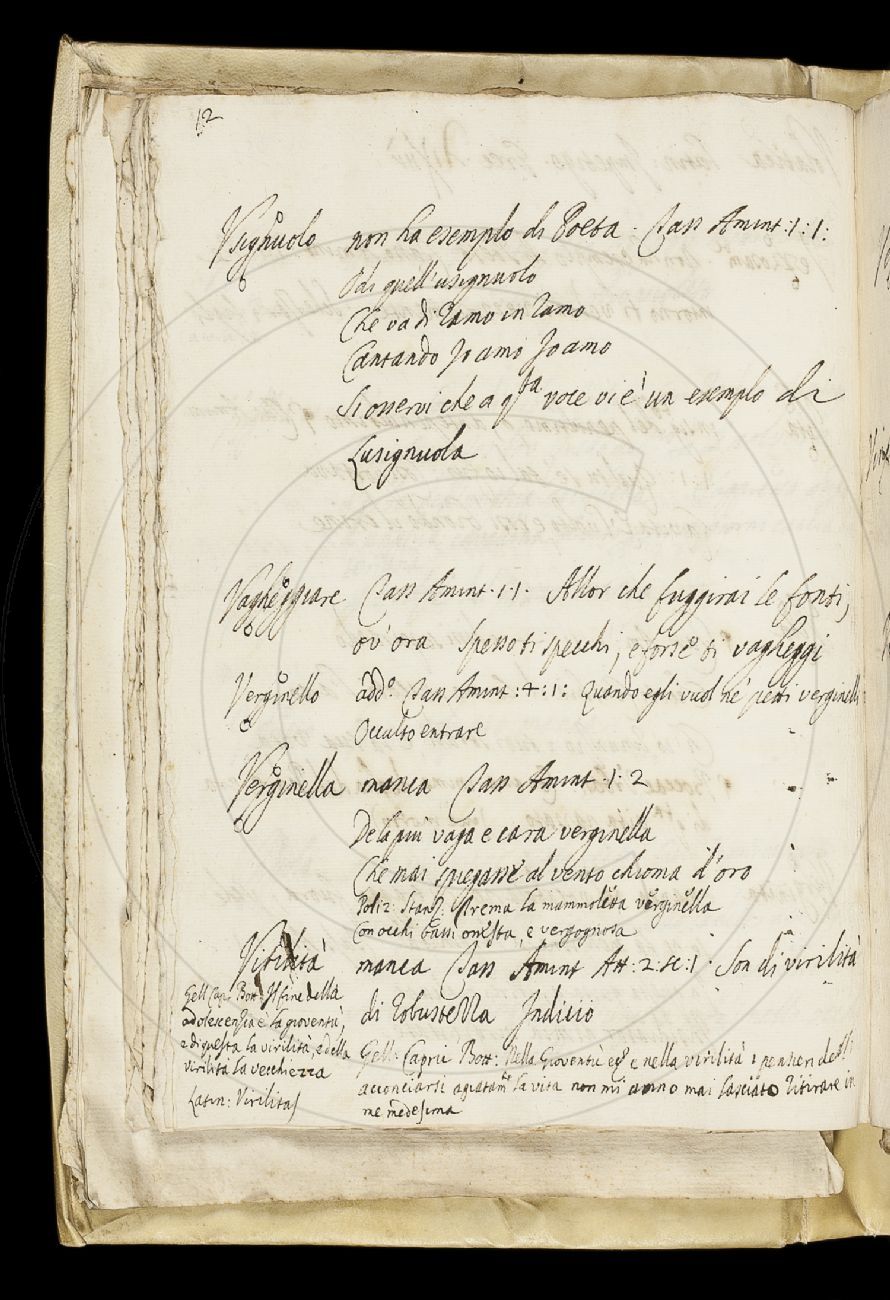 12
Vsignuolo non ha esemplo di Poeta. Tass Amint: 1: 1:
Odi quell'usignuolo
Che va di ramo in ramo
Cantando Io amo Io amo
Si osservi che a qsta voce vi è un esemplo di
Lusignuola
Vagheggiare Tass Amint. 1 1. Allor che fuggirai le fonti,
ov'ora spesso ti specchi, e forse ti vagheggi
Verginello add.º Tass Amint: 4: 1: Quando egli vuol ne' petti verginelli
Occulto entrare
Verginella manca Tass Amint. 1. 2
De la più vaga e cara verginella
Che mai spiegasse al vento chioma d'oro
Poliz: Stanz: Trema la mammoletta verginella
Con occhi bassi onesta, e vergognosa
Virilità manca Tass Amint Att: 2: sc: 1. Son di virilità
di robustezza Indicio
Gell. Capr. Bott: Il fine della
adolescenzia è la gioventù,
e di questa la virilità, e della
virilità la vecchiezza
Latin: Virilitas
Gell: Capric Bott: Nella Gioventù e nella virilità i pensieri
acconciarsi agiatamte la vita non mi anno mai lasciato ritirare in
me medesima